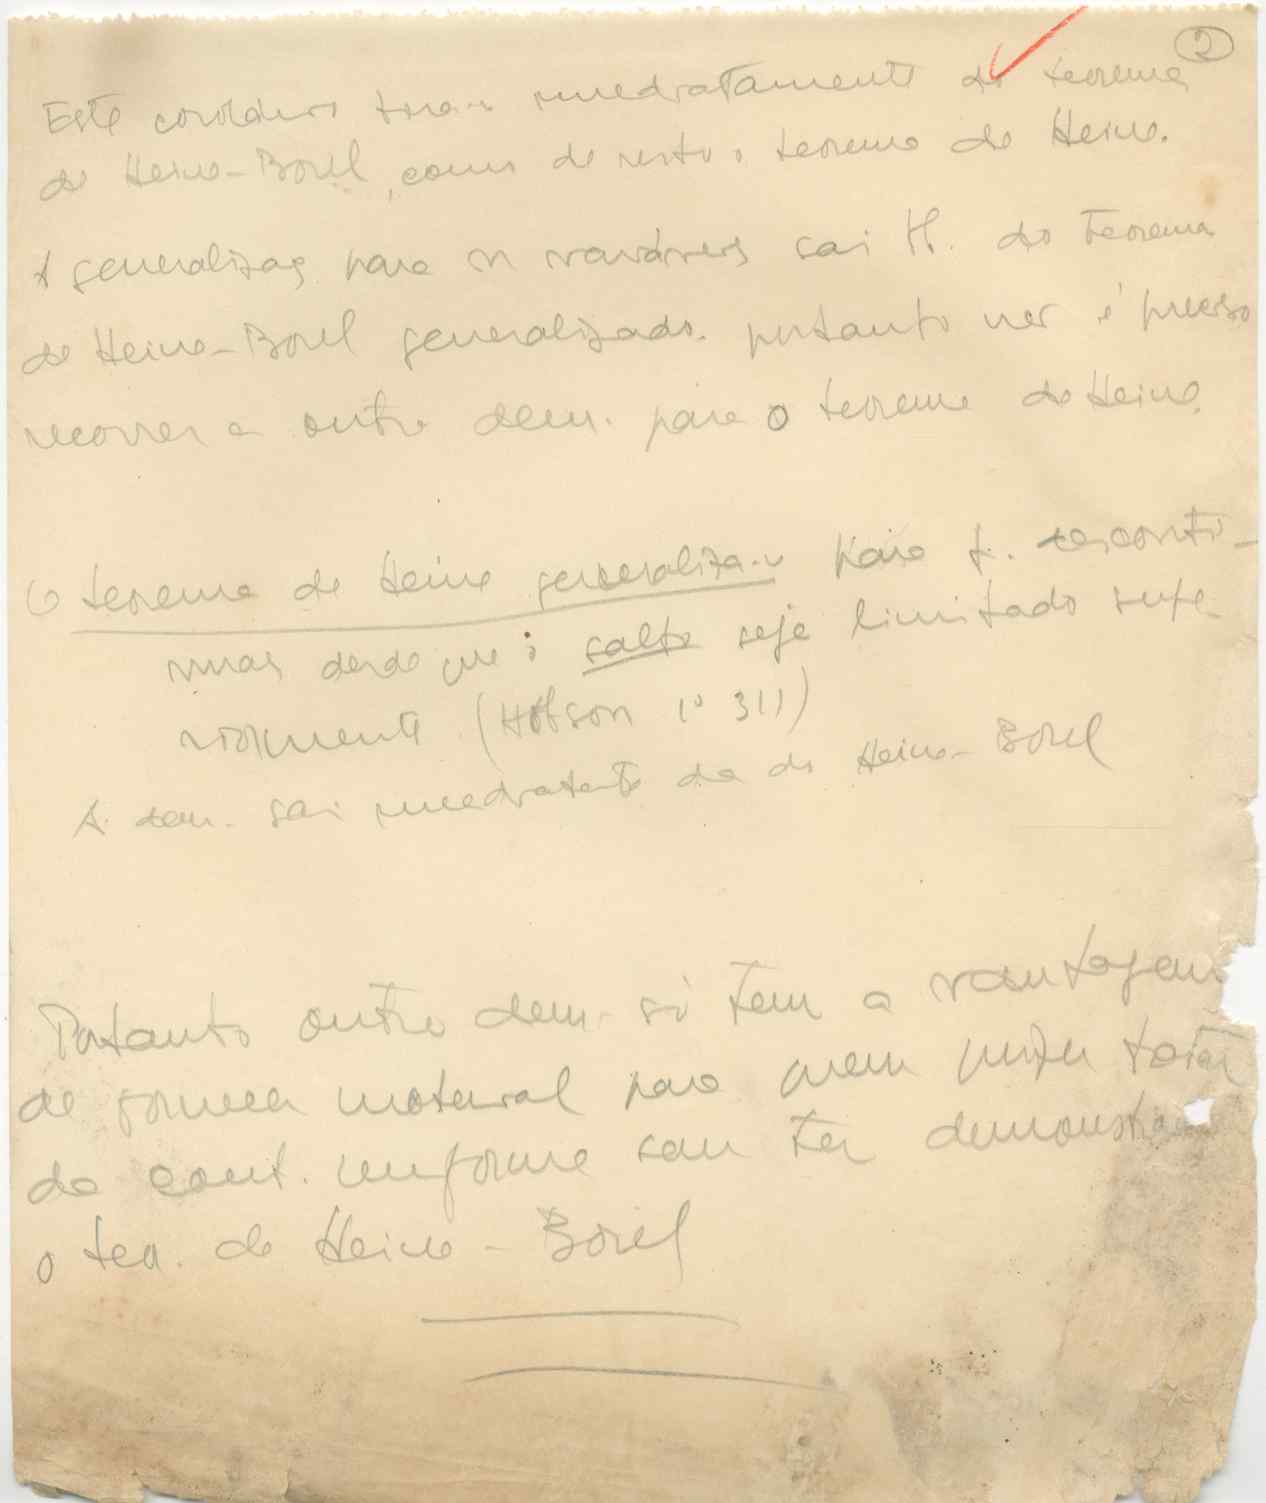 2
Este corolário imediatamente do teorema
de Heine-Borel, como de resto o teorema de Heine.
A generalizaç para n variáveis sai tb. do Teorema
de Heine-Borel generalizado. portanto é preciso
recorrer a outra dem. para o teorema de Heine.
O teorema de Heine generaliza-se para f. desconti-
nuas desde que o salto seja limitado supe-
riormente (Hobson 1º 311)
A dem. sai imediatamte da de Heine-Borel
Portanto outra dem. só tem a vantagem
de fornecer material para quem tratar
da cont. uniforme sem ter demonstrado
o teo. de Heine-Borel